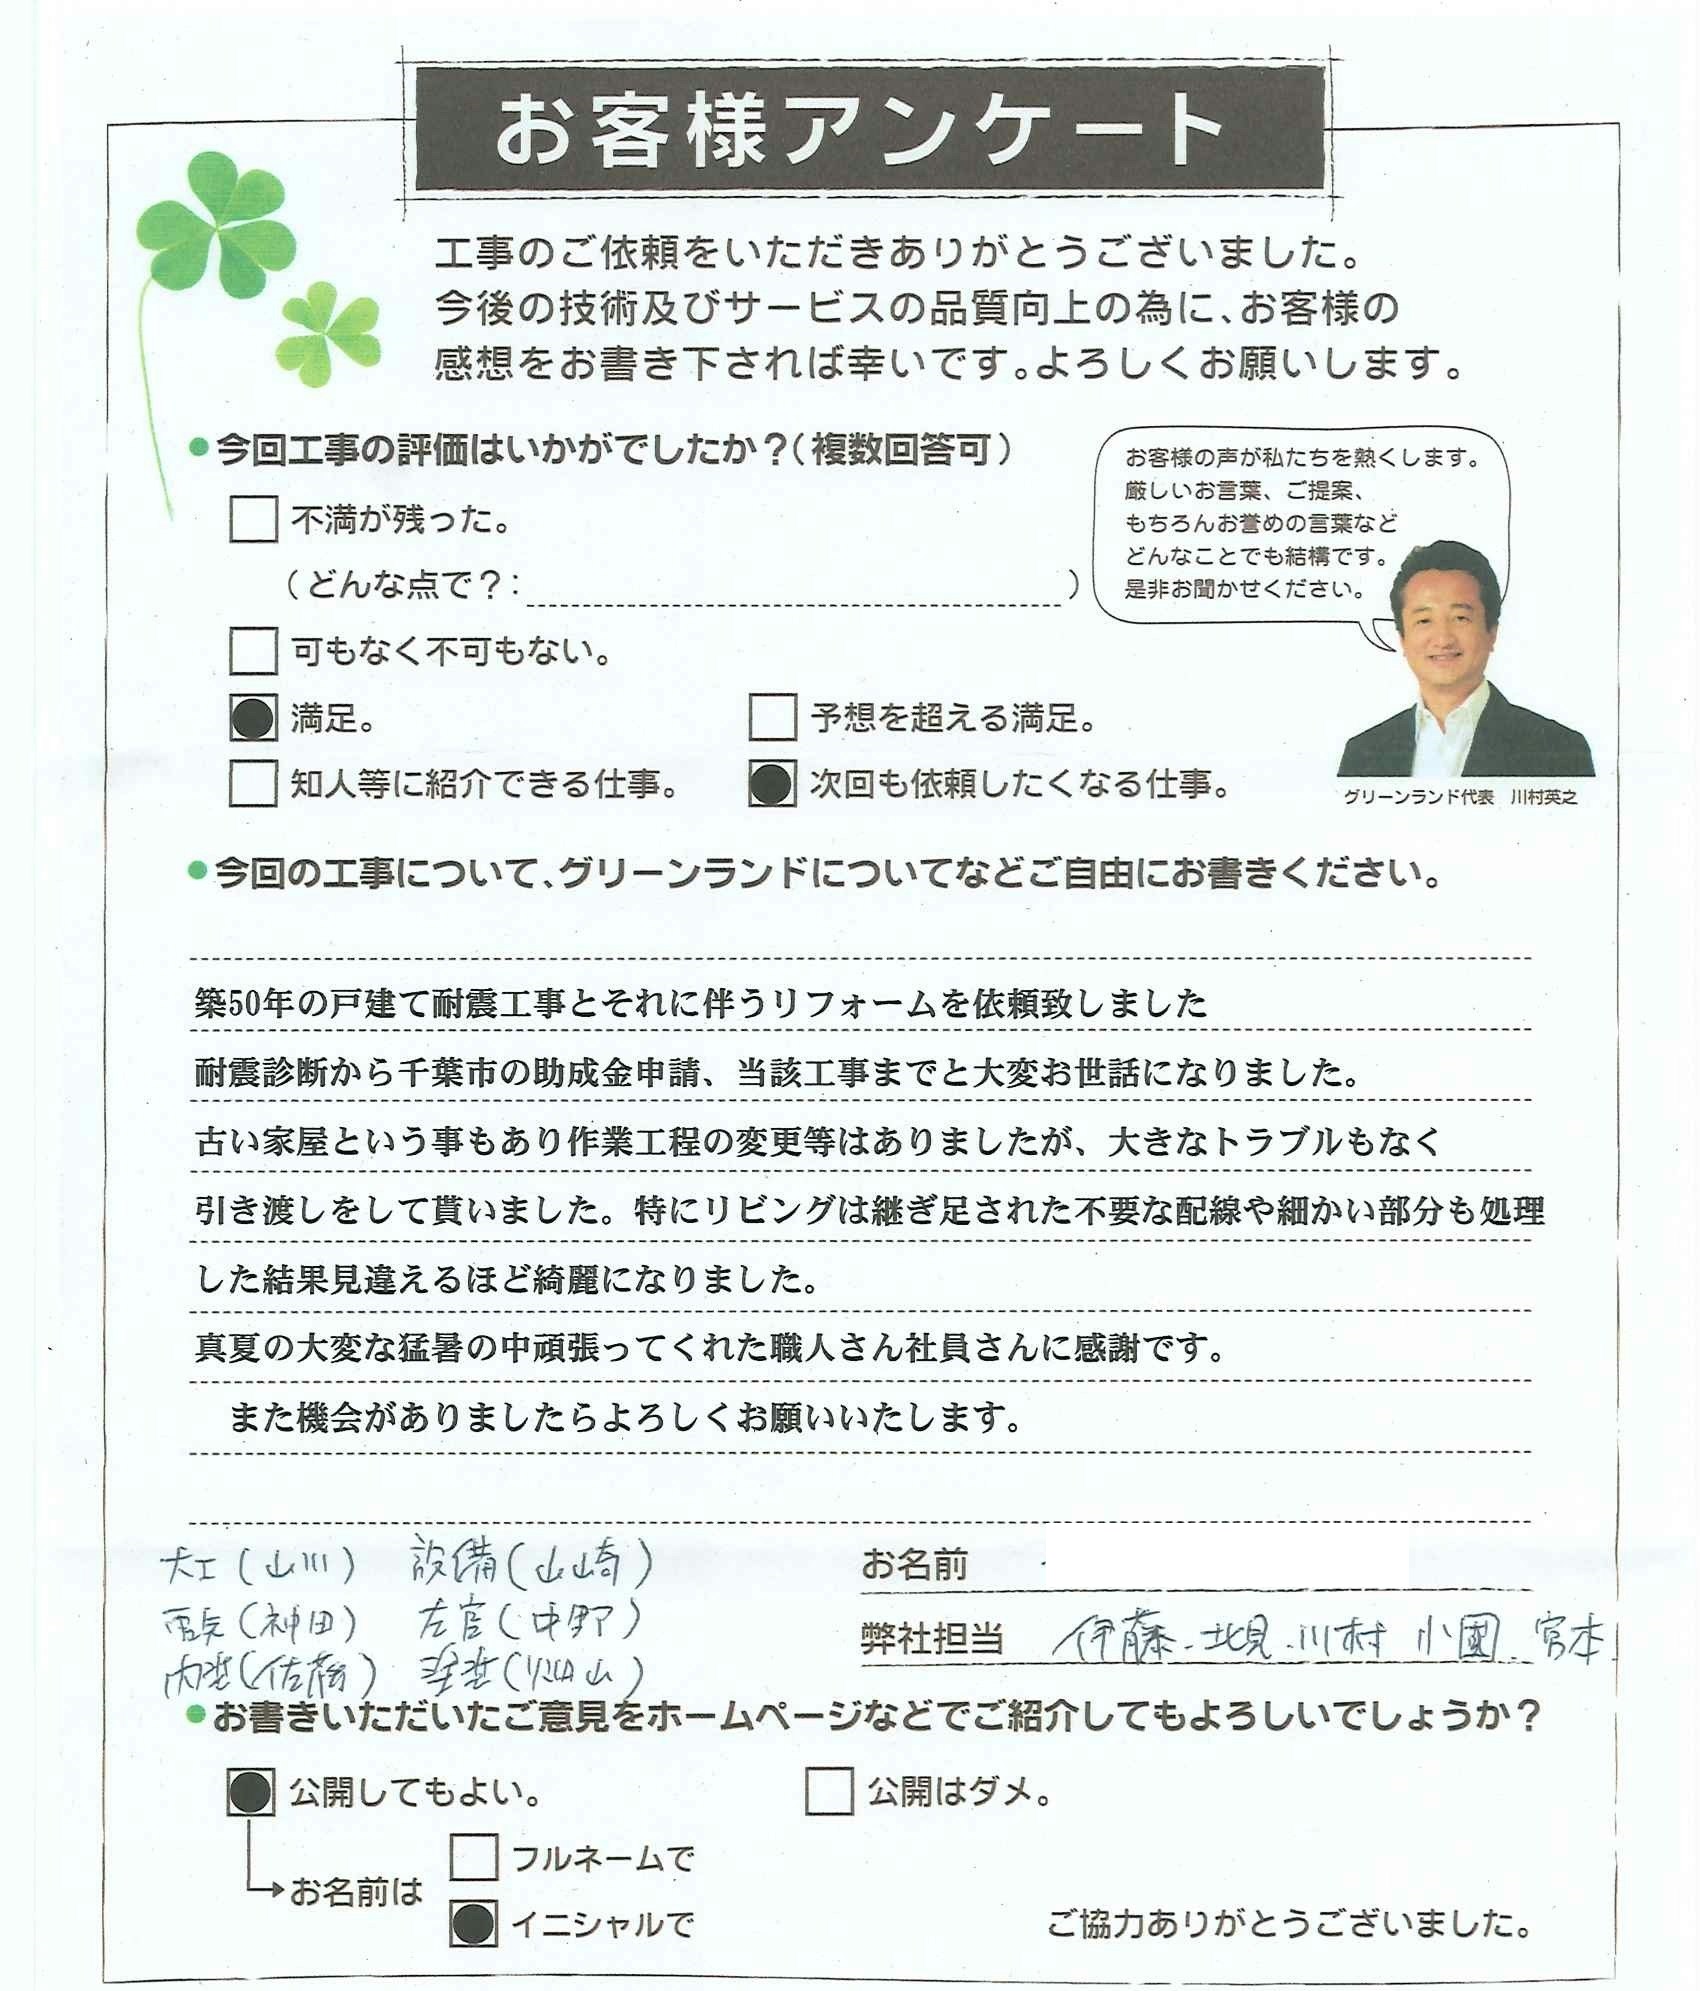 お客様アンケート
工事のご依頼をいただきありがとうございました。
今後の技術及びサービスの品質向上の為に、お客様の
感想をお書き下されば幸いです。よろしくお願いします。
●今回工事の評価はいかがでしたか？（複数回答可）
不満が残った。
（どんな点で？：　）
可もなく不可もない。
満足。
予想を超える満足。
知人等に紹介できる仕事。
次回も依頼したくなる仕事。
お客様の声が私たちを熱くします。
厳しいお言葉、ご提案、
もちろんお誉めの言葉など
どんなことでも結構です。
是非お聞かせください。
グリーンランド代表　川村英之
●今回の工事について、グリーンランドについてなどご自由にお書きください。
築50年の戸建て耐震工事とそれに伴うリフォームを依頼致しました
耐震診断から千葉市の助成金申請、当該工事までと大変お世話になりました。
古い家屋という事もあり作業工程の変更等はありましたが、大きなトラブルもなく
引き渡しをして貰いました。特にリビングは継ぎ足された不要な配線や細かい部分も処理
した結果見違えるほど綺麗になりました。
真夏の大変な猛暑の中頑張ってくれた職人さん社員さんに感謝です。
また機会がありましたらよろしくお願いいたします。
大工（山川）　設備（山崎）
電気（神田）　左官（中野）
内装（佐藤）　塗装（　山）
お名前
弊社担当　伊藤.北見.川村　小國.宮本.
●お書きいただいたご意見をホームページなどでご紹介してもよろしいでしょうか？
公開してもよい。
公開はダメ。
お名前は
フルネームで
イニシャルで
ご協力ありがとうございました。